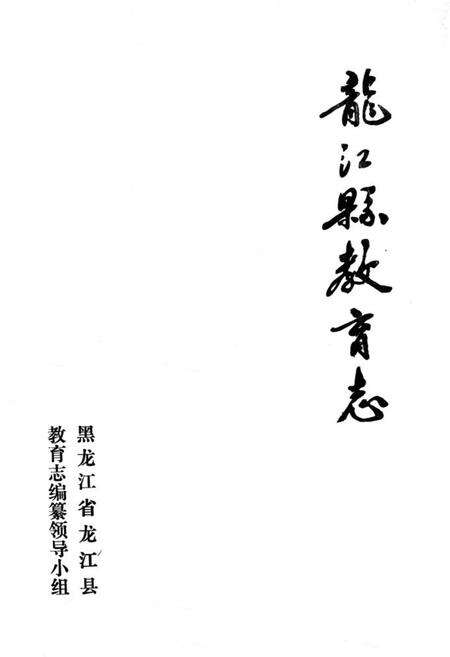 龍江縣教育志
黑龙江省龙江县
教育志编纂领导小组